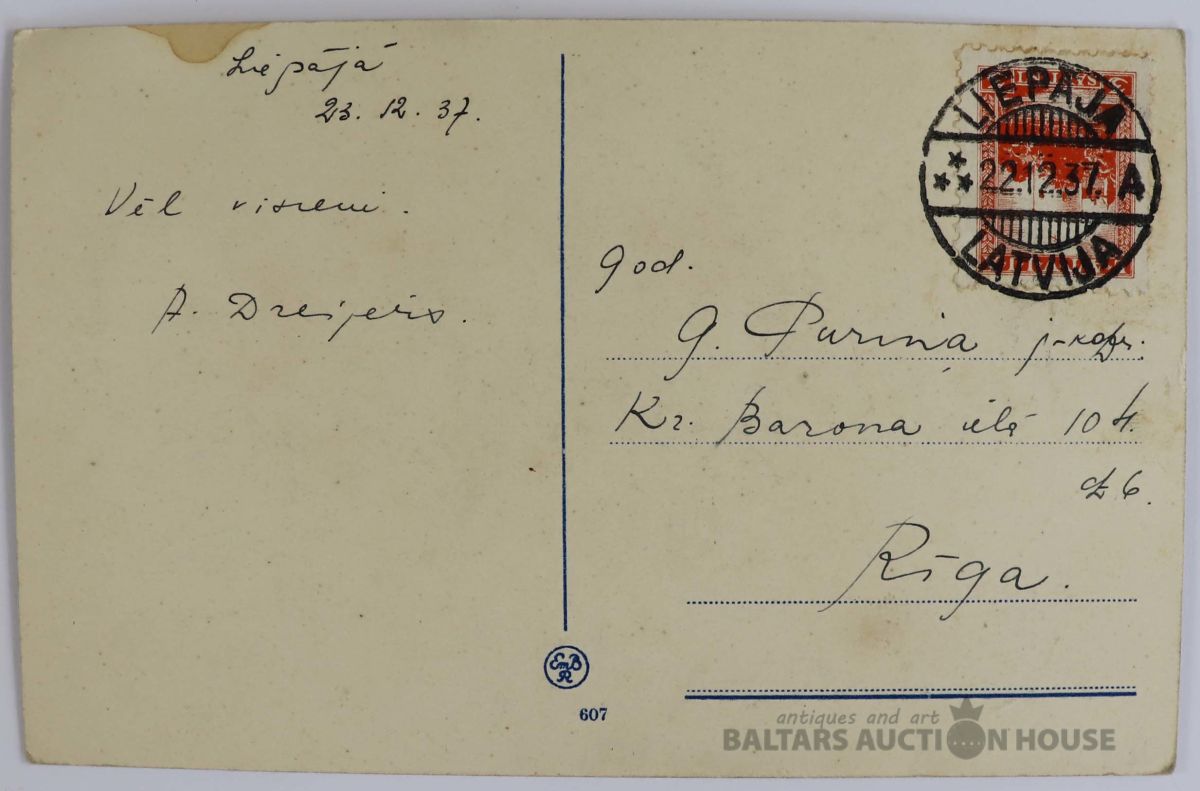 Liepājā
23. 12. 37.
Vēl visiem.
A. Dreijeris.
LIEPĀJA
22.12.37. A
LATVIJA
God.
G. Puriņa j-kdze.
Kr. Barona ielā 104.
dz 6.
Rīga.
EmBR
607
antiques and art
BALTARS AUCTION HOUSE